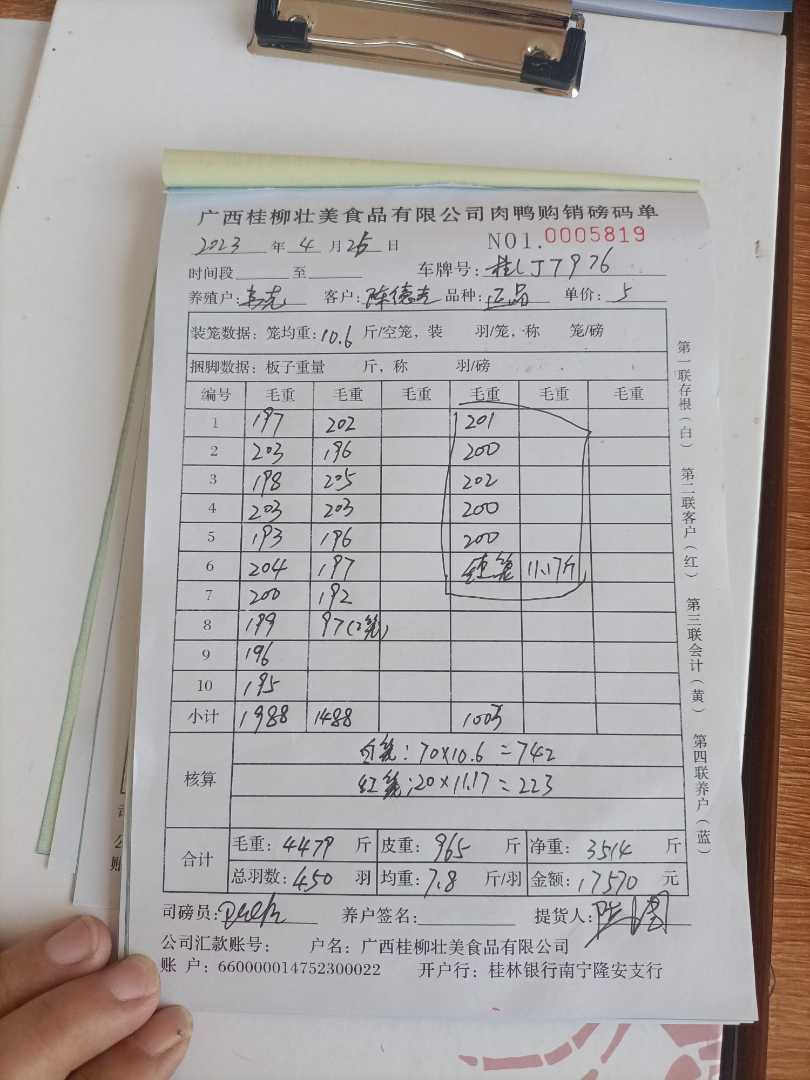 广西桂柳壮美食品有限公司肉鸭购销磅码单
2023 年 4 月 26 日 NO1.0005819
时间段 至 车牌号: 桂LJ7976
养殖户: 客户: 陈德 品种: 正品 单价: 5
装笼数据: 笼均重: 10.6 斤/空笼, 装 羽/笼, 称 笼/磅
捆脚数据: 板子重量 斤, 称 羽/磅
编号 毛重 毛重 毛重 毛重 毛重 毛重
1 197 202 201
2 203 196 200
3 198 205 202
4 203 203 200
5 193 196 200
6 204 197 笼 11.17斤
7 200 192
8 199 97(2笼)
9 196
10 195
小计 1988 1488 1003
核算
笼: 70×10.6=742
红笼: 20×11.17=223
合计
毛重: 4479 斤 皮重: 965 斤 净重: 3514 斤
总羽数: 450 羽 均重: 7.8 斤/羽 金额: 17570 元
司磅员: 养户签名: 提货人:
公司汇款账号: 户名: 广西桂柳壮美食品有限公司
账 户: 660000014752300022 开户行: 桂林银行南宁隆安支行
第一联存根(白) 第二联客户(红) 第三联会计(黄) 第四联养户(蓝)